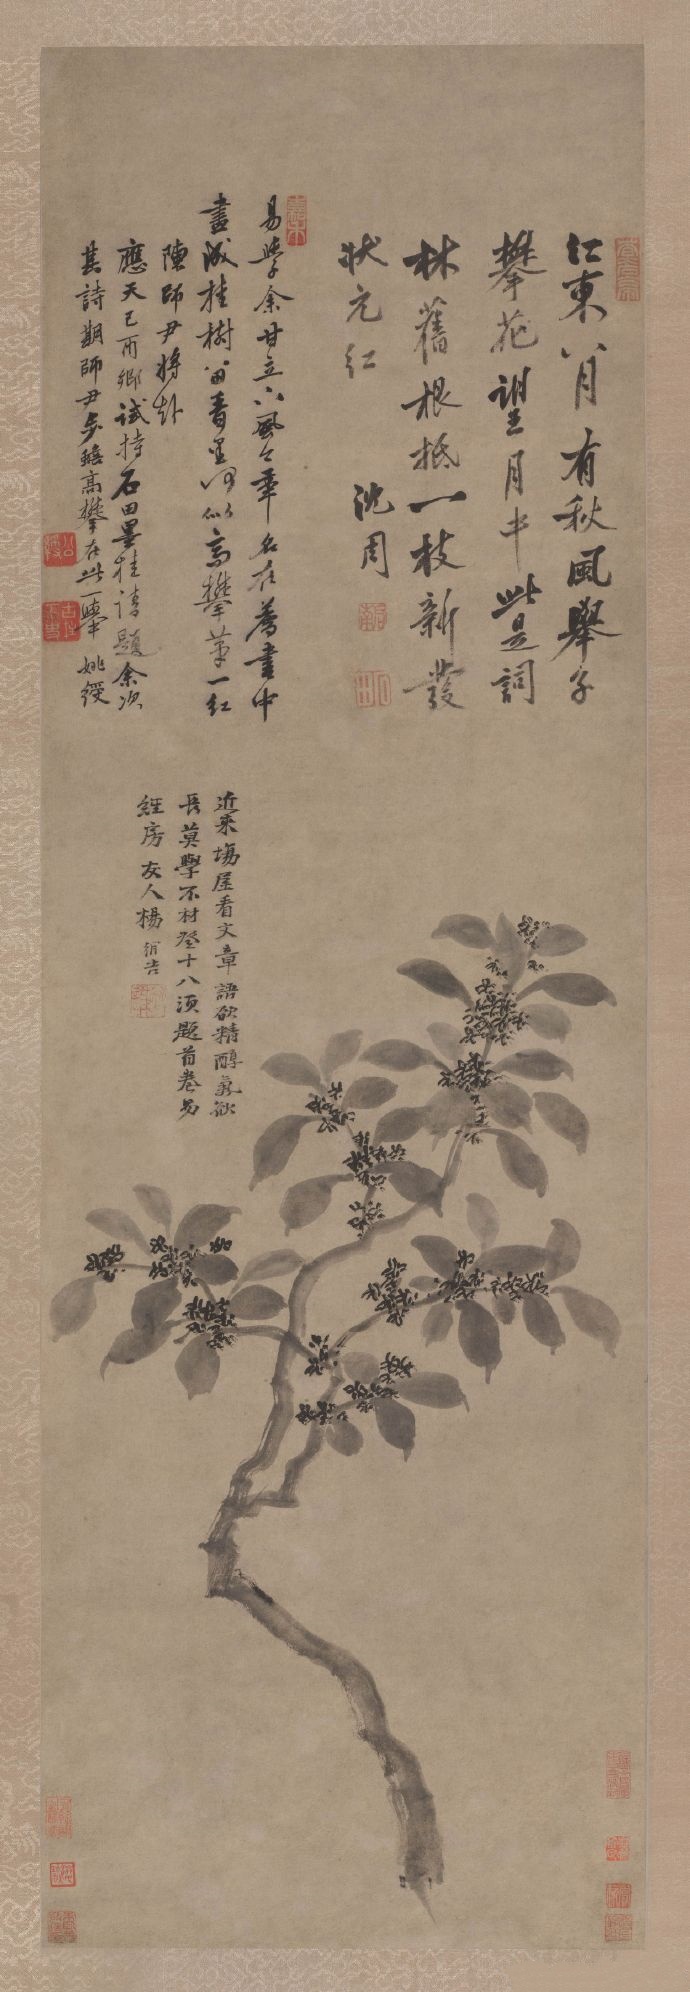 江東八月有秋風舉子
攀花望月中此是詞
林舊根柢一枝新發
狀元紅
沈周
易學余甘立下風令辜名在薦書中
畫成桂樹留看里何似高攀第一紅
陳師尹將赴
應天己酉鄉試持石田墨桂請題余次
其詩期師尹登
高攀在此一舉 姚綬
近來場屋看文章語欲精醇氣欲
長莫學不材登十八須題首卷易
經房 友人楊